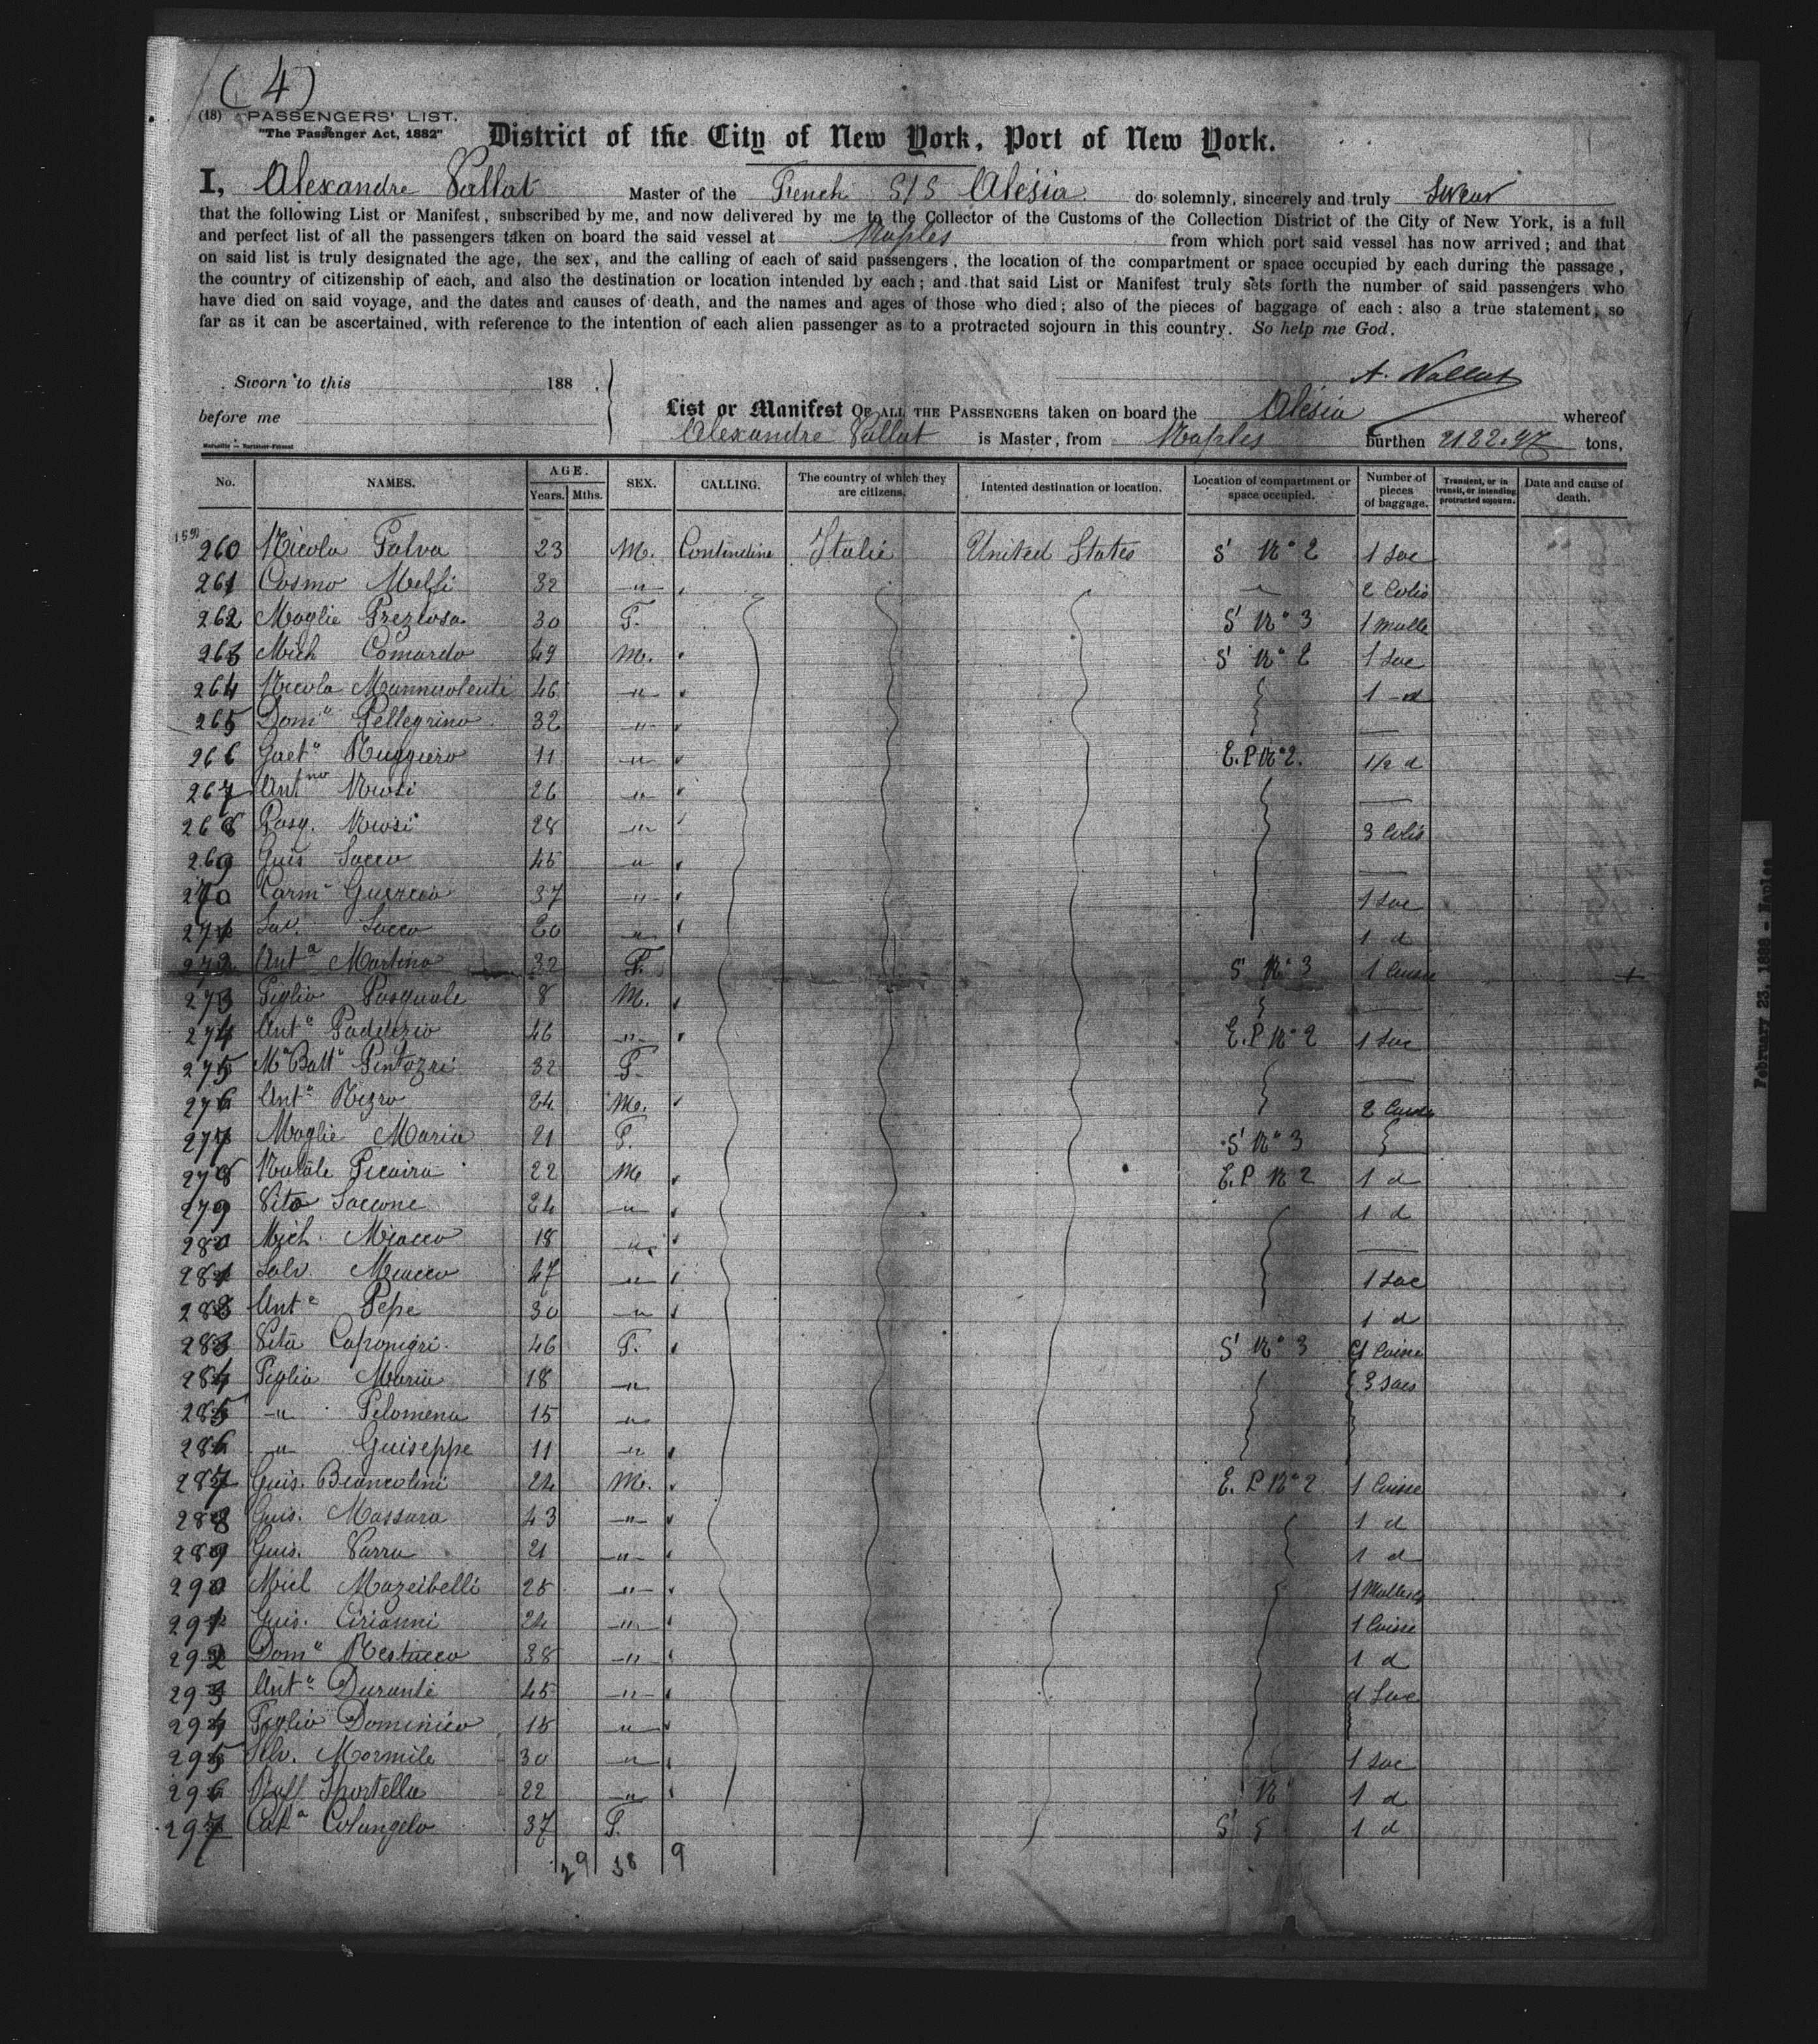 ( 4 )
(18) PASSENGERS' LIST.
"The Passenger Act, 1882"
District of the City of New York, Port of New York.
I, Alexandre Vallat Master of the French S/S Alésia do solemnly, sincerely and truly swear
that the following List or Manifest, subscribed by me, and now delivered by me to the Collector of the Customs of the Collection District of the City of New York, is a full
and perfect list of all the passengers taken on board the said vessel at Naples from which port said vessel has now arrived; and that
on said list is truly designated the age, the sex, and the calling of each of said passengers, the location of the compartment or space occupied by each during the passage,
the country of citizenship of each, and also the destination or location intended by each; and that said List or Manifest truly sets forth the number of said passengers who
have died on said voyage, and the dates and causes of death, and the names and ages of those who died; also of the pieces of baggage of each: also a true statement, so
far as it can be ascertained, with reference to the intention of each alien passenger as to a protracted sojourn in this country. So help me God.
A. Vallat
Sworn to this 188
before me
List or Manifest OF ALL THE PASSENGERS taken on board the Alésia whereof
Alexandre Vallat is Master, from Naples burthen tons,
No. NAMES. AGE. Years. Mths. SEX. CALLING. The country of which they are citizens. Intented destination or location. Location of compartment or space occupied. Number of pieces of baggage. Transient, or in transit, or intending protracted sojourn. Date and cause of death.
260 Nicola Falva 23 M. Contindine Italie United States S' No 2 1 Sac
261 Cosmo Melfi 32 " 2 Colis
262 Moglie Preziosa 30 F. S' No 3 1 malle
263 Mich Comardo 49 M. S' No 2 1 Sac
264 Nicola 46 " 1 d
265 Domo Pellegrino 32 "
266 Gaeto Ruggiero 11 " E. P No 2. 1/2 d
267 Antno Niosi 26 "
268 Pasq. Niosi 28 " 3 Colis
269 Guis Sacco 45 "
270 Carmo 37 " 1 Sac
271 Sav. Sacco 20 " 1 d
272 Anta Martino 32 F. S' No 3 1 Caisse
273 Figlio Pasquale 8 M.
274 Anto 46 " E. P No 2 1 Sac
275 Ma Batta 32 F.
276 Anto Rizzo 24 M. 2
277 Moglie Maria 21 F. S' No 3
278 Natale Ficaira 22 M. E. P No 2 1 d
279 Vito Saccone 24 " 1 d
280 Mich. Miacco 18 "
281 Salv. Miacco 47 " 1 Sac
282 Anto Pepe 30 " 1 d
283 Vita Caponigri 46 F. S' No 3 1 Caisse
284 Figlia Maria 18 " 3 Sacs
285 " Filomena 15 "
286 " Guiseppe 11 "
287 Guis. Biancolini 24 M. E. P No 2 1 Caisse
288 Guis. Massara 43 " 1 d
289 Guis. Varra 21 " 1 d
290 Micl Mazeibelli 25 " 1
291 Guis. Cirianni 24 " 1 Caisse
292 Domo Restucco 38 " 1 d
293 Anto Durante 45 " 1 Sac
294 Figlio Dominico 15 "
295 Salv. Mormile 30 " 1 Sac
296 Raff Sportella 22 " No 1 d
297 Cata Colangelo 37 F. S' 1 d
29 38 9
February 23, 1888 - Naples